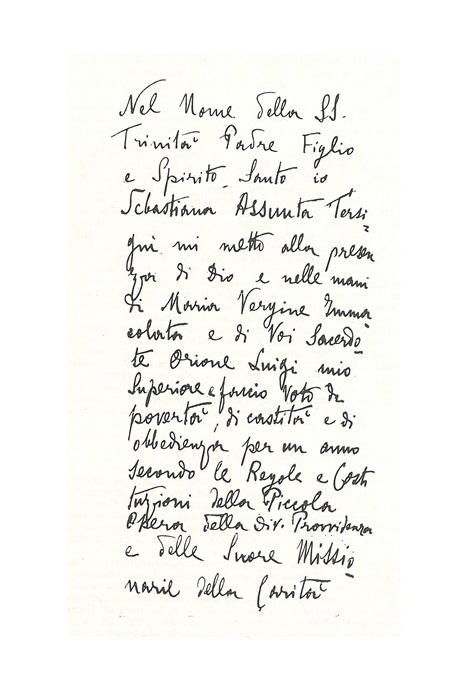 Nel Nome della SS.
Trinità Padre Figlio
e Spirito Santo io
Sebastiana Assunta Tersi=
gni mi metto alla presen=
za di Dio e nelle mani
di Maria Vergine Imma=
colata e di Voi Sacerdo=
te Orione Luigi mio
Superiore e faccio voto di
povertà, di castità e di
obbedienza per un anno
secondo le Regole e Costi
tuzioni della Piccola
Opera della Div. Provvidenza
e delle Suore Missio=
narie della Carità